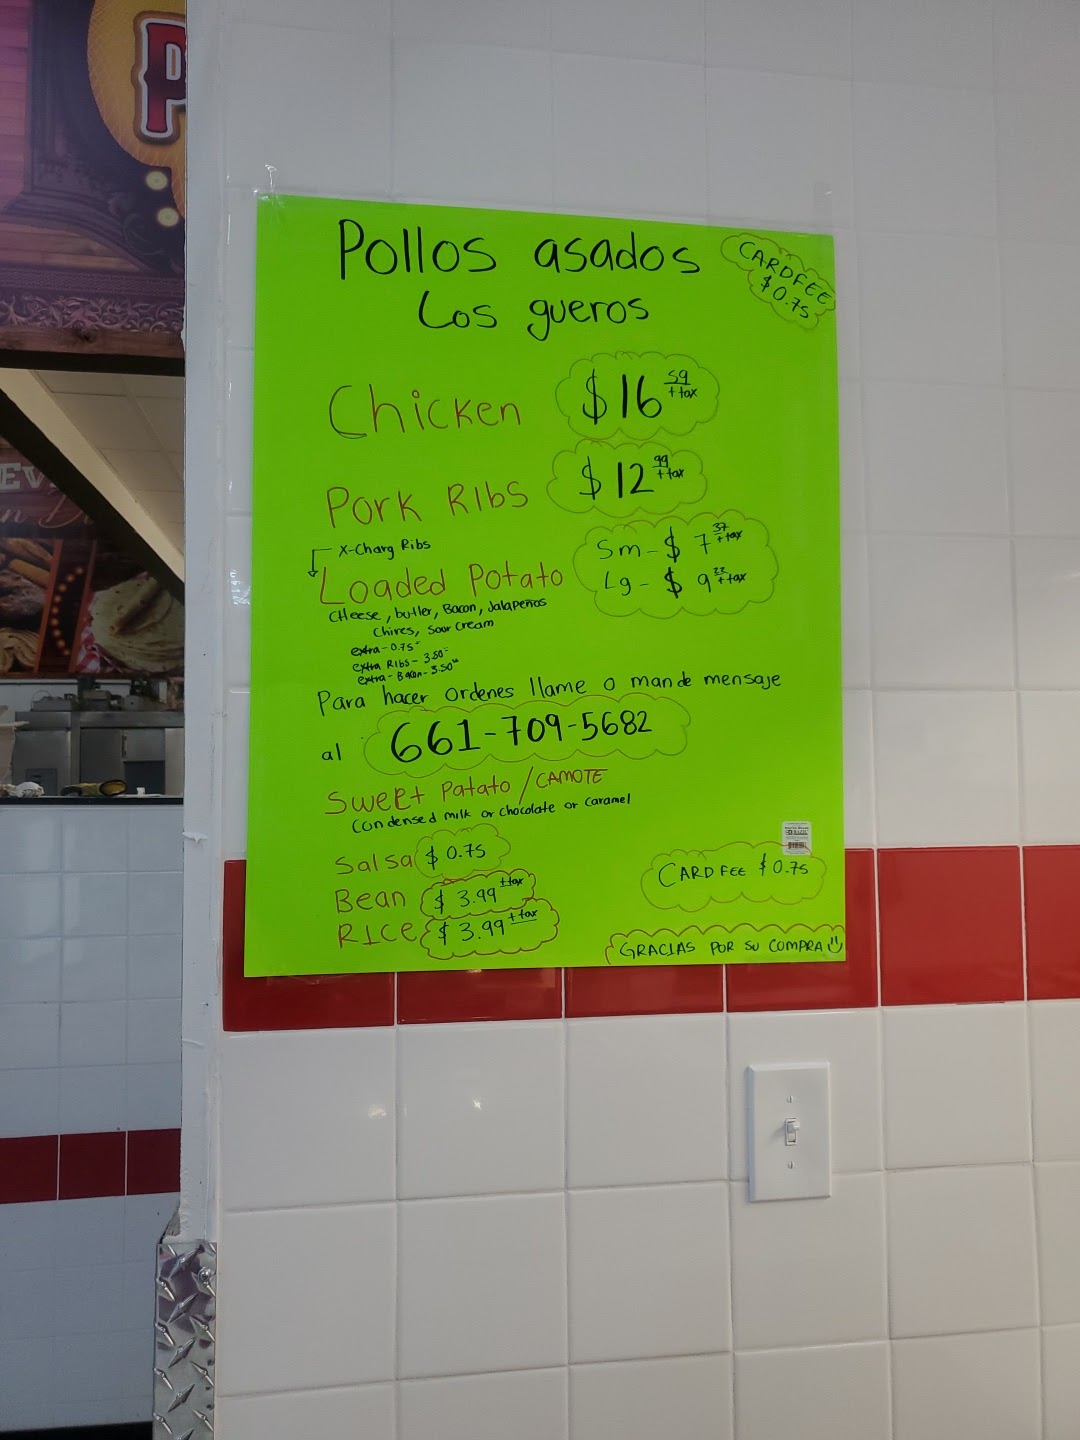 P
EV
Pollos asados
Los gueros
CARDFEE
$0.75
Chicken $16 59 + tax
Pork Ribs $12 99 + tax
X-Charg Ribs
Loaded Potato
Sm - $ 7 37 + tax
Lg - $ 9 22 + tax
CHeese, butter, Bacon, Jalapeños
Chives, Sour cream
extra - 0.75
extra Ribs - 3.50
extra - Bacon - 3.50
Para hacer ordenes llame o mande mensaje
al 661-709-5682
Sweet Patato / CAMOTE
Condensed milk or chocolate or caramel
Salsa $ 0.75
Bean $ 3.99 + tax
RICE $ 3.99 + tax
CARD FEE $0.75
GRACIAS POR SU COMPRA